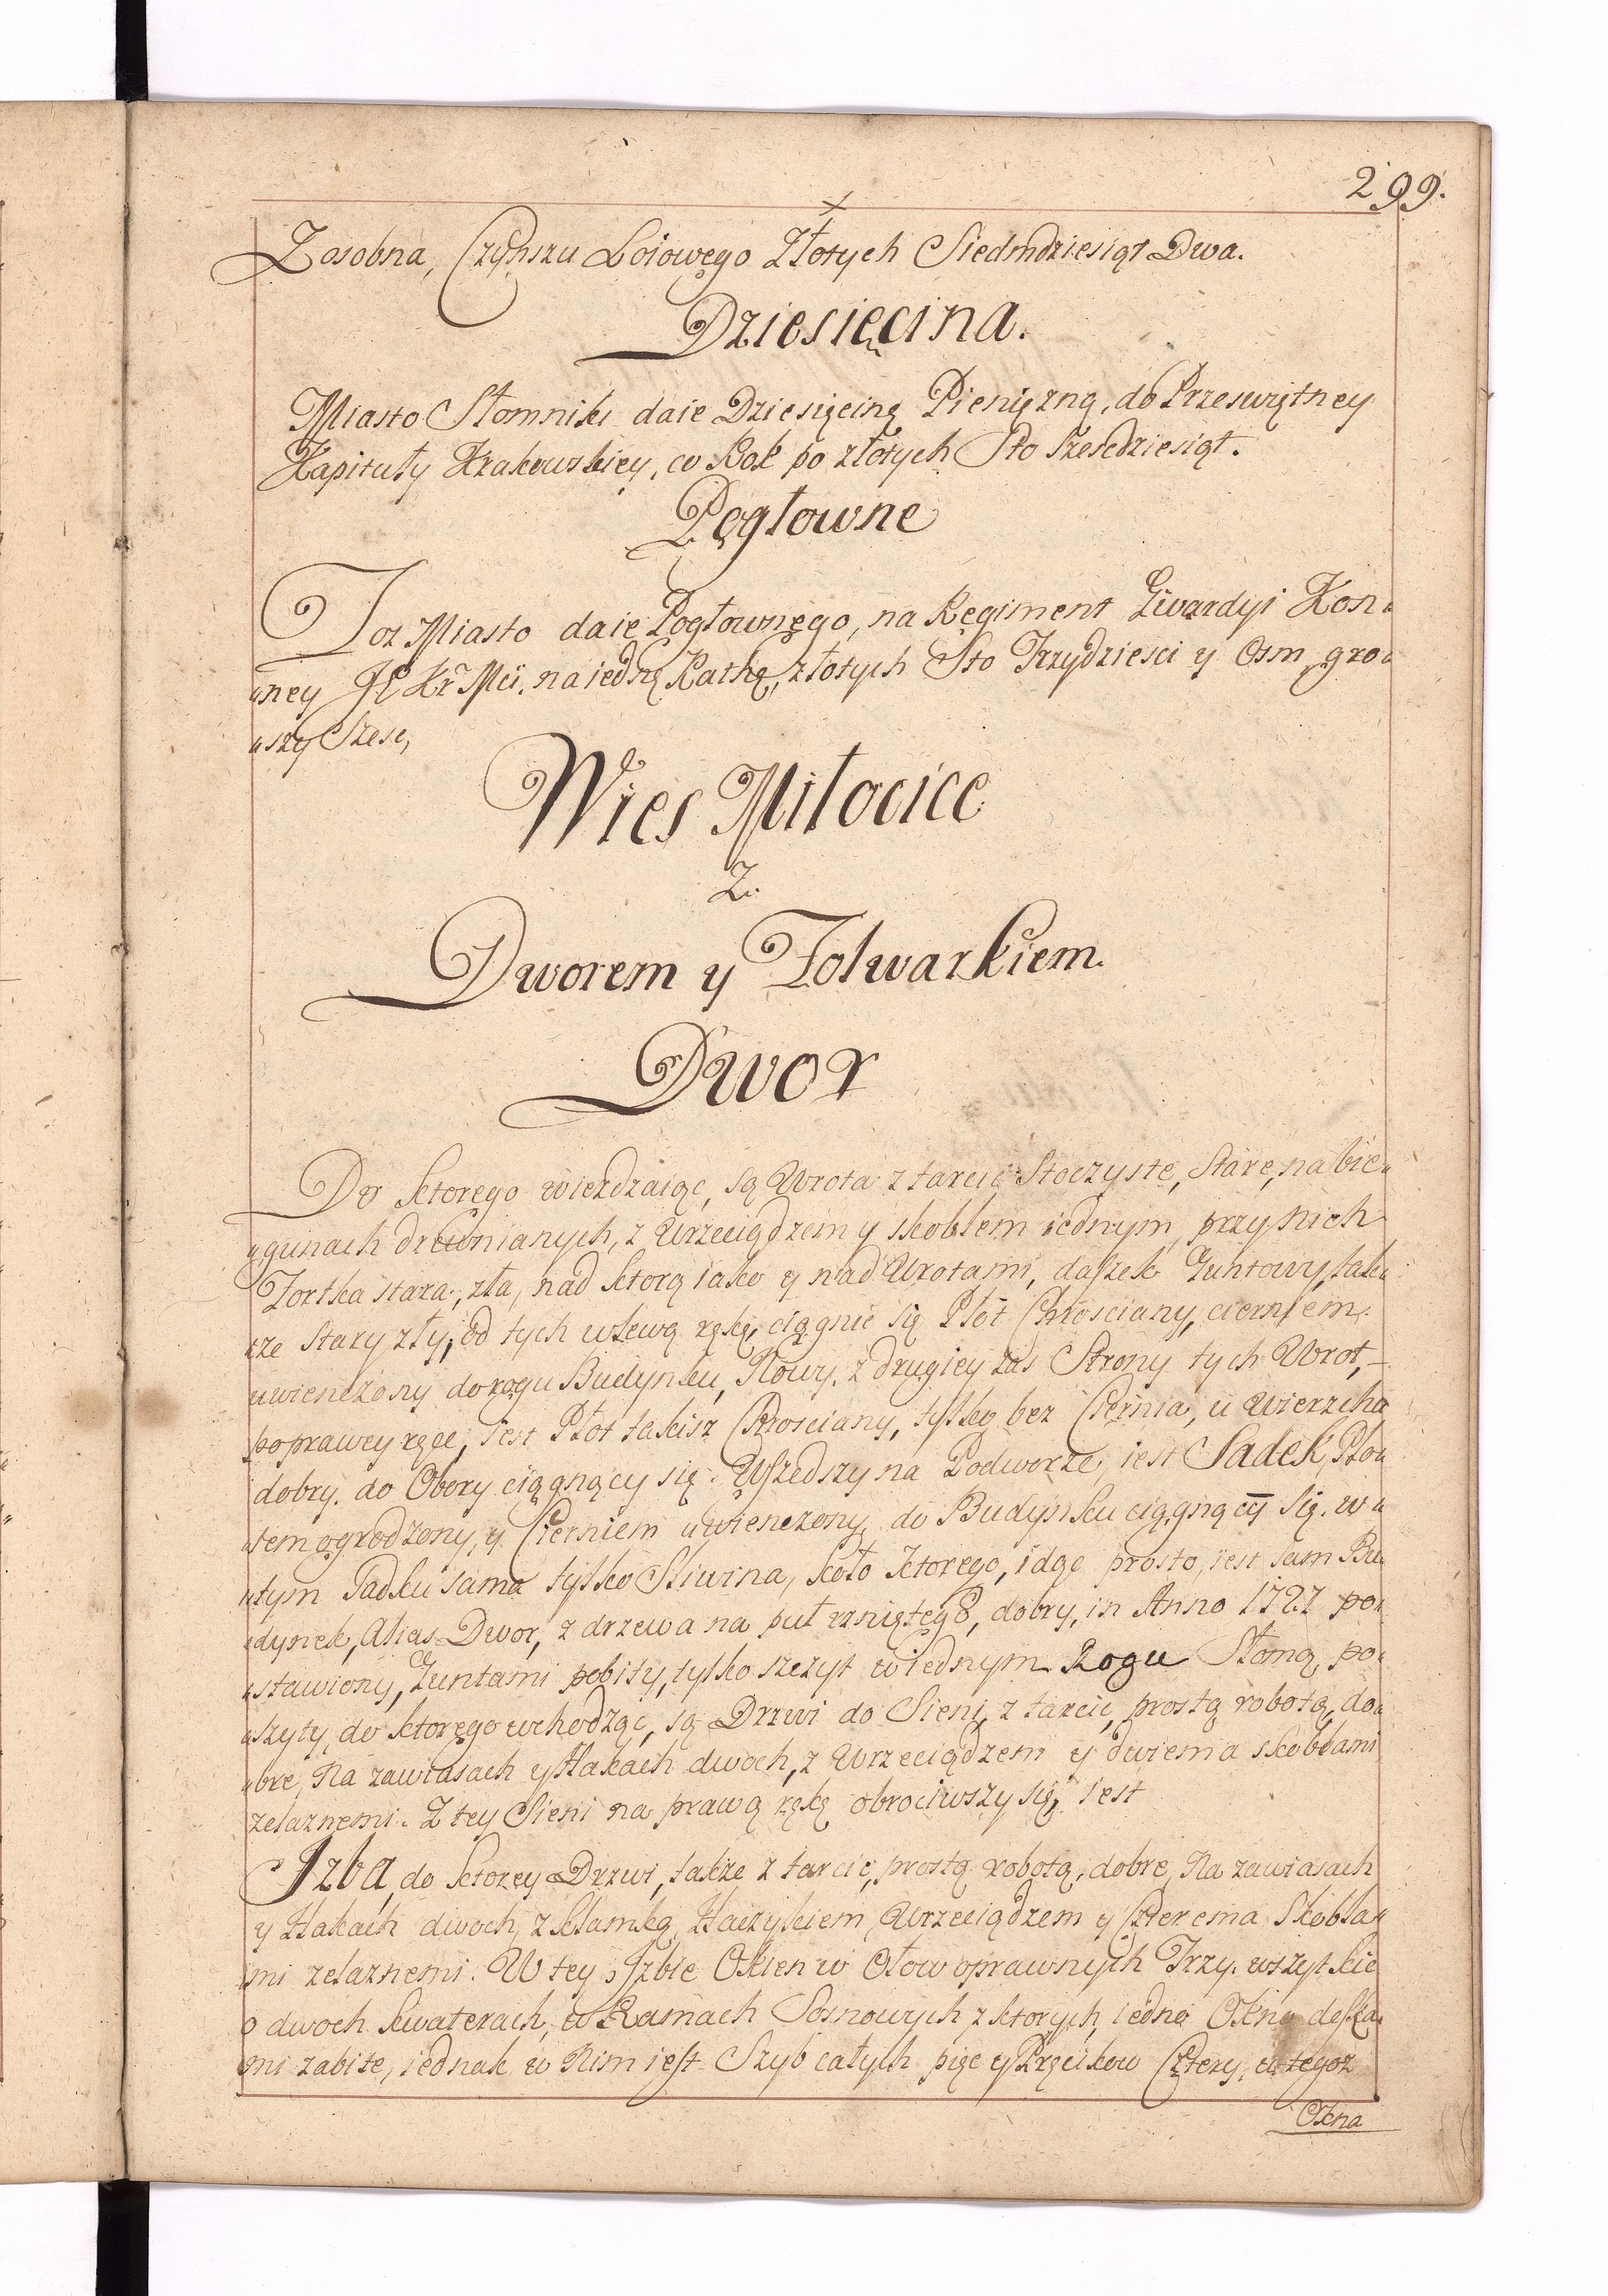 299.
Zosobna, Czynszu Łoiowego Złotych Siedmdziesiąt Dwa.
Dziesięcina.
Miasto Słomniki daie Dziesięcinę Pienięzną, do Przeswiętney
Kapituły Krakowskiey, co Rok po złotych Sto Szescdziesiąt.
Pogłowne
Toz Miasto daie Pogłownego, na Regiment Gwardyi Kon„
„ney JK Kr Mci, na iednę Rathę, złotych Sto Trzydziesci y Osm, gro„
„szy Szesc,
Wies Miłocice
Z.
Dworem y Folwarkiem.
Dwor
Do ktorego wiezdzaiąc, są Wrota z tarcic Stoczyste, Stare, na bie„
„gunach drewnianych, z Wrzeciądzem y skoblem iednym, przy nich
Fortka stara, zła, nad ktorą iako y nad Wrotami, daszek Guntowy, tak„
„ze Stary zły, od tych w lewą rękę, ciągnie się Płot Chłosciany, cierniem
uwienczony do rogu Budynku, Nowy. z drugiey zas Strony tych Wrot,
po prawey ręce, iest Płot takisz Chłosciany, tylko bez Ciernia, u Wierzchu
dobry, do Obory ciągnący się. Wszedszy na Podworze, iest Sadek, Pło„
„tem ogrodzony, y Cierniem uwienczony, do Budynku ciągnący się. w„
„tym Sadku sama tylko Sliwina, koło ktorego, idąc prosto, iest sam Bu„
„dynek, alias Dwor, z drzewa na puł rzniętego, dobry, in Anno 1727 po„
„stawiony, Guntami pobity, tylko szczyt w iednym Rogu Słomą po„
„szyty, do ktorego wchodząc, są Drzwi do Sieni, z tarcic, prostą robotą, do„
„bre, Na zawiasach y Hakach dwoch, z Wrzeciądzem y dwiema skoblami
zelaznemi. Z tey Sieni na prawą rękę obrociwszy się, iest
Izba, do ktorey Drzwi, takze z tarcic, prostą robotą, dobre, Na zawiasach
y Hakach dwoch, z klamką, Haczykiem, Wrzeciądzem y Czterema Skobla„
„mi zelaznemi. W tey Izbie Okien w Ołow oprawnych Trzy. wszytkie
o dwoch kwaterach, w Ramach Sosnowych z ktorych, iedno Okno deska„
„mi zabite, iednak w Nim iest Szyb całych pięc y Pręcikow Cztery, u tegoz
Okna